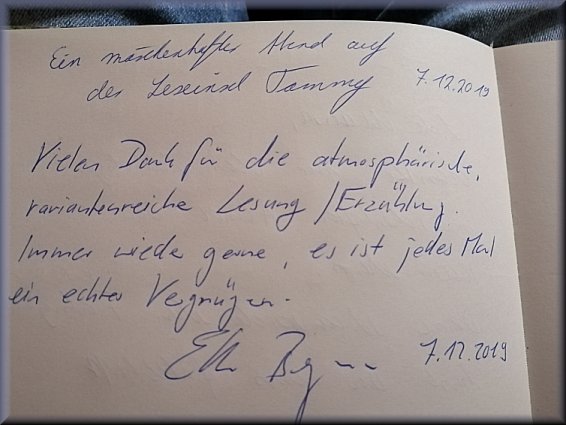 Ein märchenhafter Abend auf
der Leseinsel Tammy 7.12.2019
Vielen Dank für die atmosphärische,
variantenreiche Lesung / Erzählung.
Immer wieder gerne, es ist jedes Mal
ein echtes Vergnügen.
7.12.2019